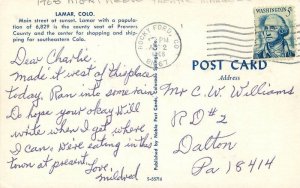 LAMAR, COLO.
Main street at sunset. Lamar with a population
of 6,829 is the county seat of Prowers
County and the center for shopping and shipping
for southeastern Colo.
Dear Charlie,
made it west of this place
today. Ran into some rain
Do hope your okay will
write when I get where
I can. We're eating in this
town at present.
Love,
mildred
Published by Noble Post Cards
WASHINGTON
ROCKY FORD,
PM
1967
POST CARD
Address
Mr C. W. Williams
R D # 2
Dalton
Pa 18414